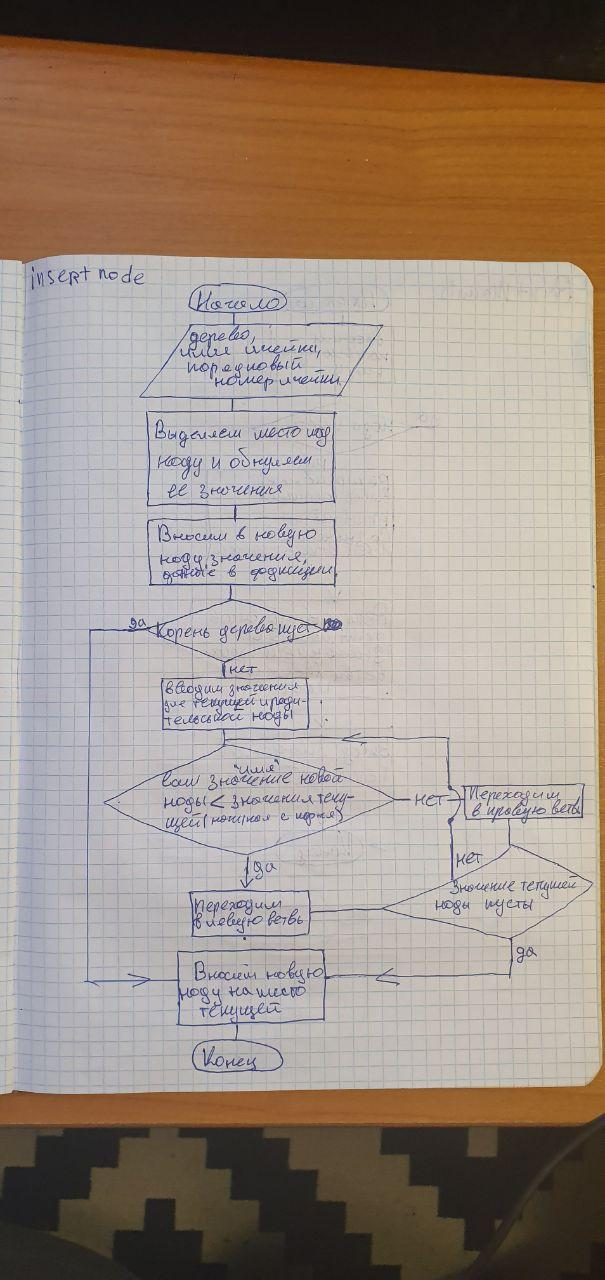 insert node
Начало
дерево,
имя ячейки,
порядковый
номер ячейки
Выделяем место под
ноду и обнуляем
её значения
Вносим в новую
ноду значения,
данные в функции
да
Корень дерева пуст
нет
вводим значения
для текущей и роди-
тельской ноды
"имя"
Если значение новой
ноды < значения теку-
щей (начиная с корня)
нет
Переходим
в правую ветвь
да
нет
Переходим
в левую ветвь
Значение текущей
ноды пусты
да
Вносим новую
ноду на место
текущей
Конец